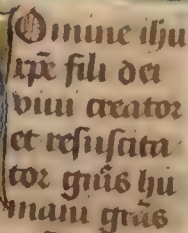 Omine ihu
xp̄e fili dei
viui creator
et resuscita
tor gn̄is hu
mani grās